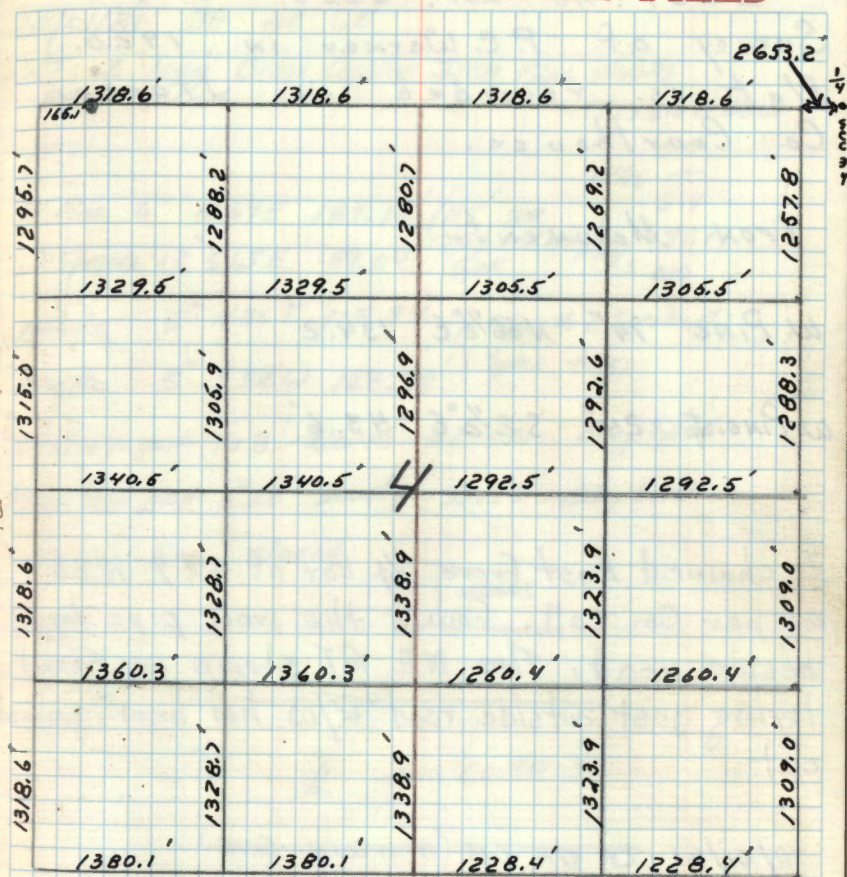 2653.2'
1318.6' 1318.6' 1318.6' 1318.6' 1/4
165.1'
1295.7' 1288.2' 1280.7' 1269.2' 1257.8'
1329.5' 1329.5' 1305.5' 1305.5'
1315.0' 1305.9' 1296.9' 1292.6' 1288.3'
1340.5' 1340.5' 4 1292.5' 1292.5'
1318.6' 1328.7' 1338.9' 1323.9' 1309.0'
1360.3' 1360.3' 1260.4' 1260.4'
1318.6' 1328.7' 1338.9' 1323.9' 1309.0'
1380.1' 1380.1' 1228.4' 1228.4'